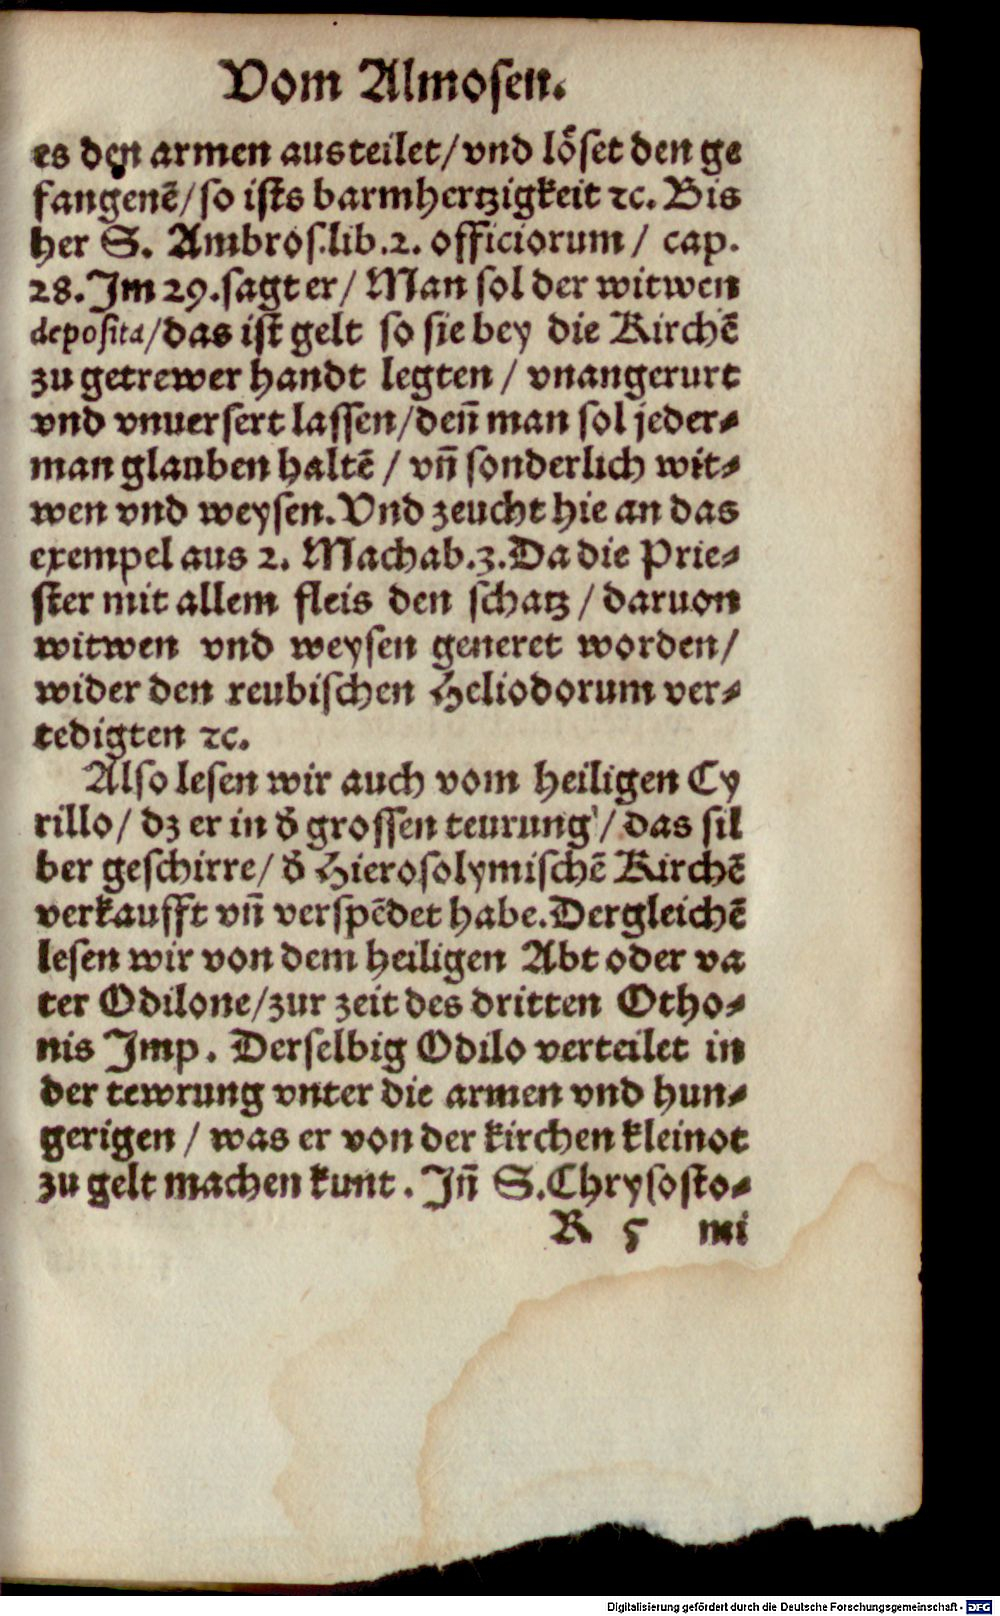 Vom Almosen.
es den armen austeilet/vnd löset den ge
fangenẽ/so ists barmhertzigkeit ꝛc. Bis
her S. Ambros.lib.2. officiorum / cap.
28. Im 29.sagt er/ Man sol der witwen
deposita/das ist gelt so sie bey die Kirchẽ
zu getrewer handt legten / vnangerurt
vnd vnuersert lassen/deñ man sol jeder⸗
man glauben haltẽ / vñ sonderlich wit⸗
wen vnd weysen. Vnd zeucht hie an das
exempel aus 2. Machab.3. Da die Prie⸗
ster mit allem fleis den schatz / daruon
witwen vnd weysen generet worden/
wider den reubischen Heliodorum ver⸗
tedigten ꝛc.
Also lesen wir auch vom heiligen Cy
rillo/ dz er in d̕ grossen teurung/ das sil
ber geschirre/ d̕ Hierosolymischẽ Kirchẽ
verkaufft vñ verspẽdet habe. Dergleichẽ
lesen wir von dem heiligen Abt oder va
ter Odilone/zur zeit des dritten Otho⸗
nis Imp. Derselbig Odilo verteilet in
der tewrung vnter die armen vnd hun⸗
gerigen / was er von der kirchen kleinot
zu gelt machen kunt. Iñ S. Chrysosto⸗
R 5 mi
Digitalisierung gefördert durch die Deutsche Forschungsgemeinschaft - DFG